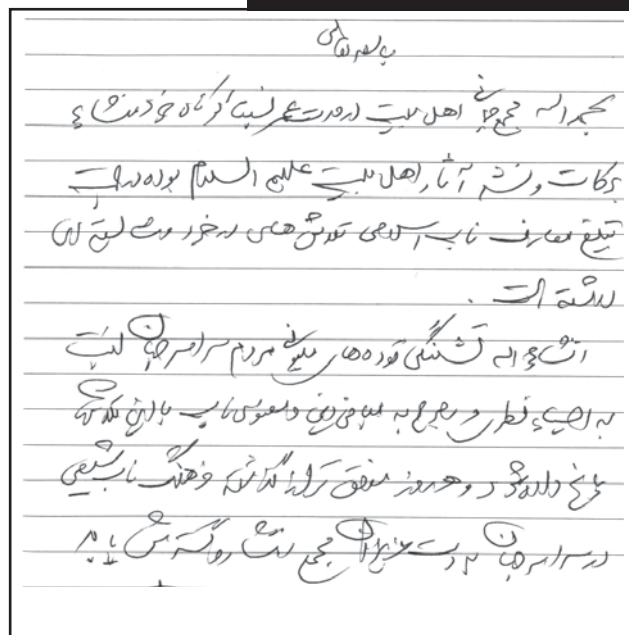 باسمه تعالی
بحمد اله مجمع جهانی اهل بیت در مدت عمر نسبتا کوتاه خود منشاء
برکات و نشر آثار اهل بیت علیهم السلام بوده و در
تبلیغ معارف ناب اسلامی تلاش های در خور و شایسته ای
داشته است .
انشاء اله تشنگی توده های میلیونی مردم سراسر جهان نسبت
به احیاء فطرت و رجوع به مبانی دینی و معنوی ناب با این تلاشها
پاسخ داده شود و هر روز موفق تر از گذشته فرهنگ ناب شیعی
در سراسر جهان به دست عزیزان مجمع نشر و گسترش یابد